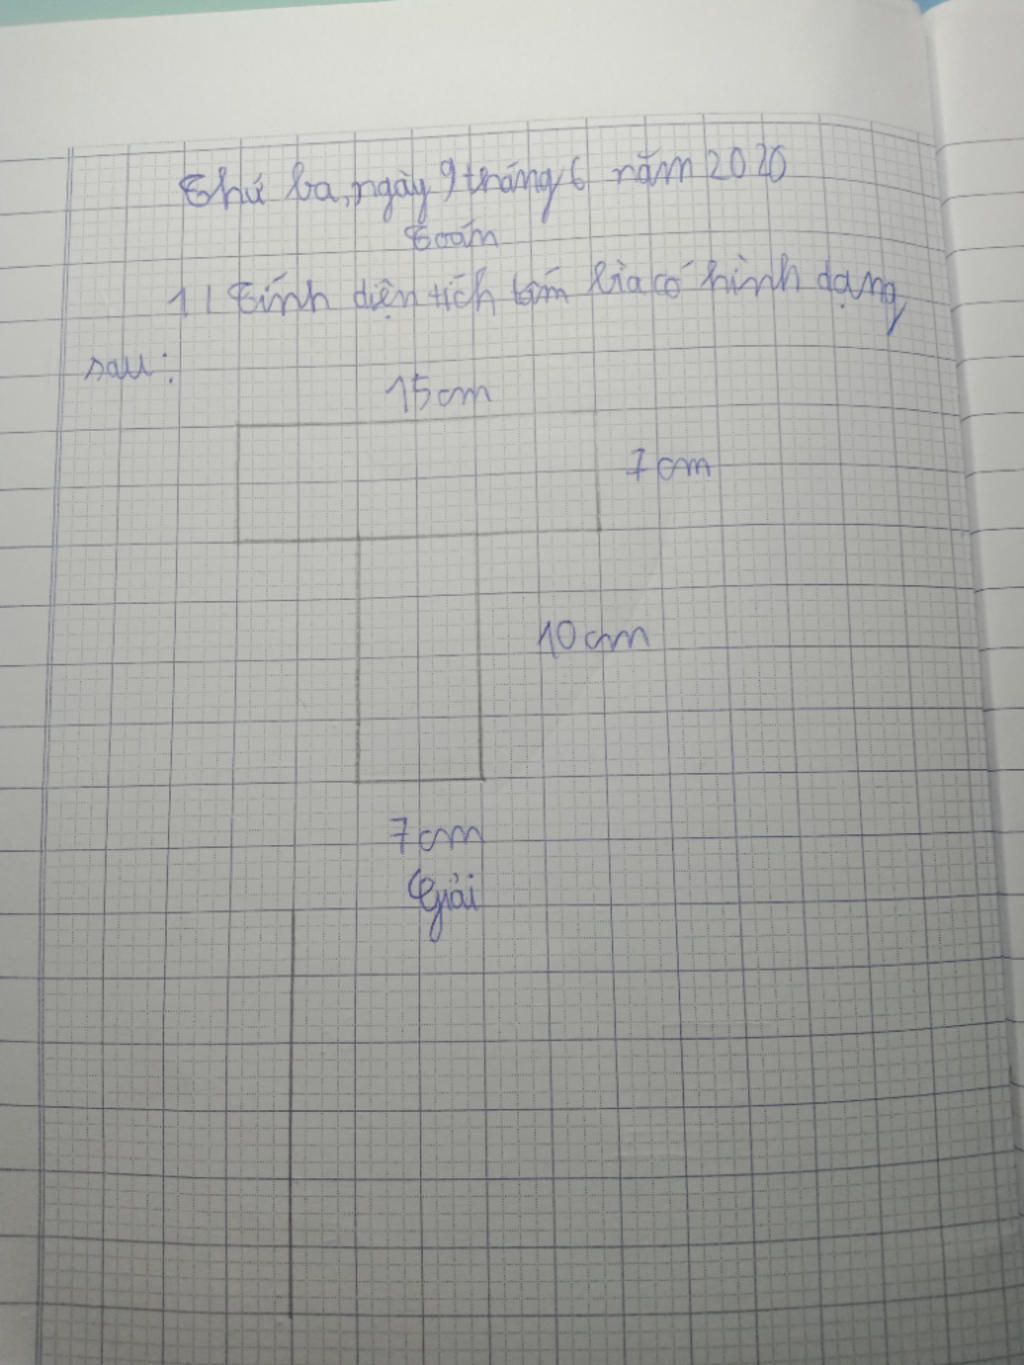 Thứ ba, ngày 9 tháng 6 năm 2020
Toán
1/ Tính diện tích tấm bìa có hình dạng
sau:
15cm
7cm
10cm
7cm
Giải